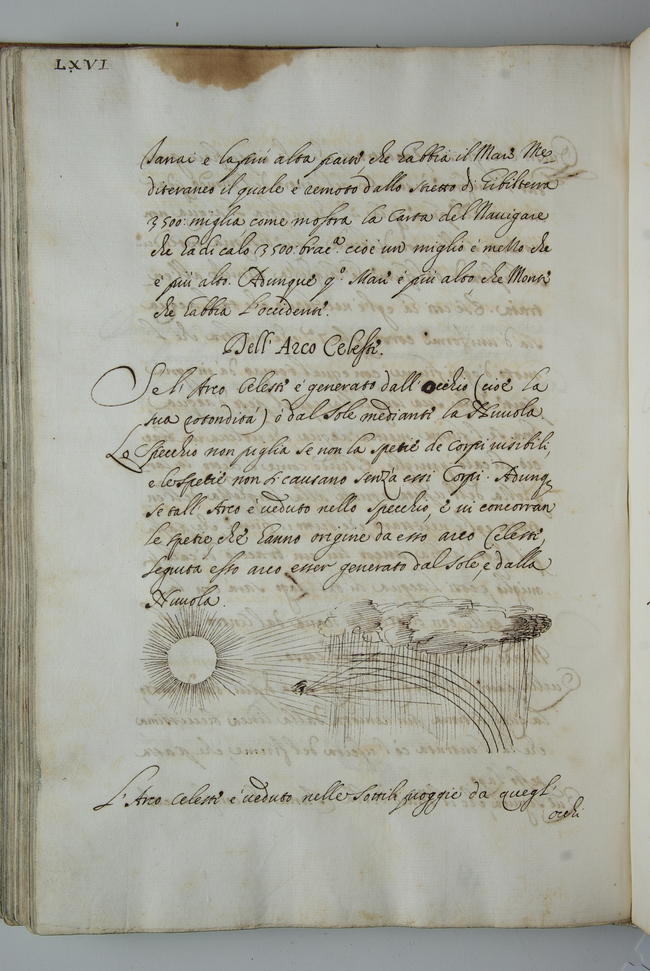 LXVI
Tanai e la più alta parte che habbia il Mare Me-
diterraneo il quale è remoto dallo stretto di Gibilterra
3500: miglia come mostra la Carta del Nauigare
che ha di calo 3500: brac.ª cioè un miglio e mezzo che
è più alto. Adunque q.º Mare è più alto che Monte
che habbia l'occidente.
Dell' Arco Celeste.
Se li Arco Celesti è generato dall' occhio (cioè la
sua rotondità) ò dal Sole mediante la Nuuola.
Lo Specchio non piglia se non la spetie de Corpi uisibili,
e le spetie non si causano senza essi Corpi. Adunq.
se tall' Arco è ueduto nello specchio, e ui concorran
le spetie, che hanno origine da esso arco Celeste,
seguita esso arco esser generato dal Sole, e dalla
Nuuola.
L' Arco Celesti è ueduto nelle Sottili pioggie da quegl'
occhi